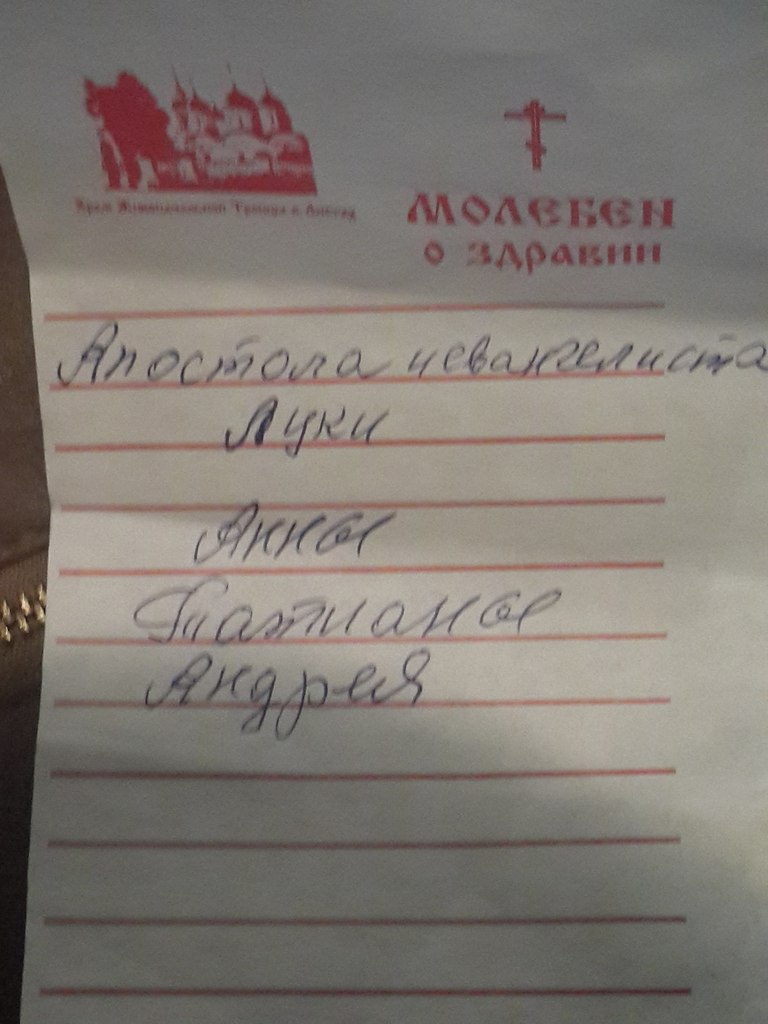 МОЛЕБЕН
о здравии
Храм Живоначальной Троицы в
Апостола и евангелиста
Луки
Анны
Татианы
Андрея